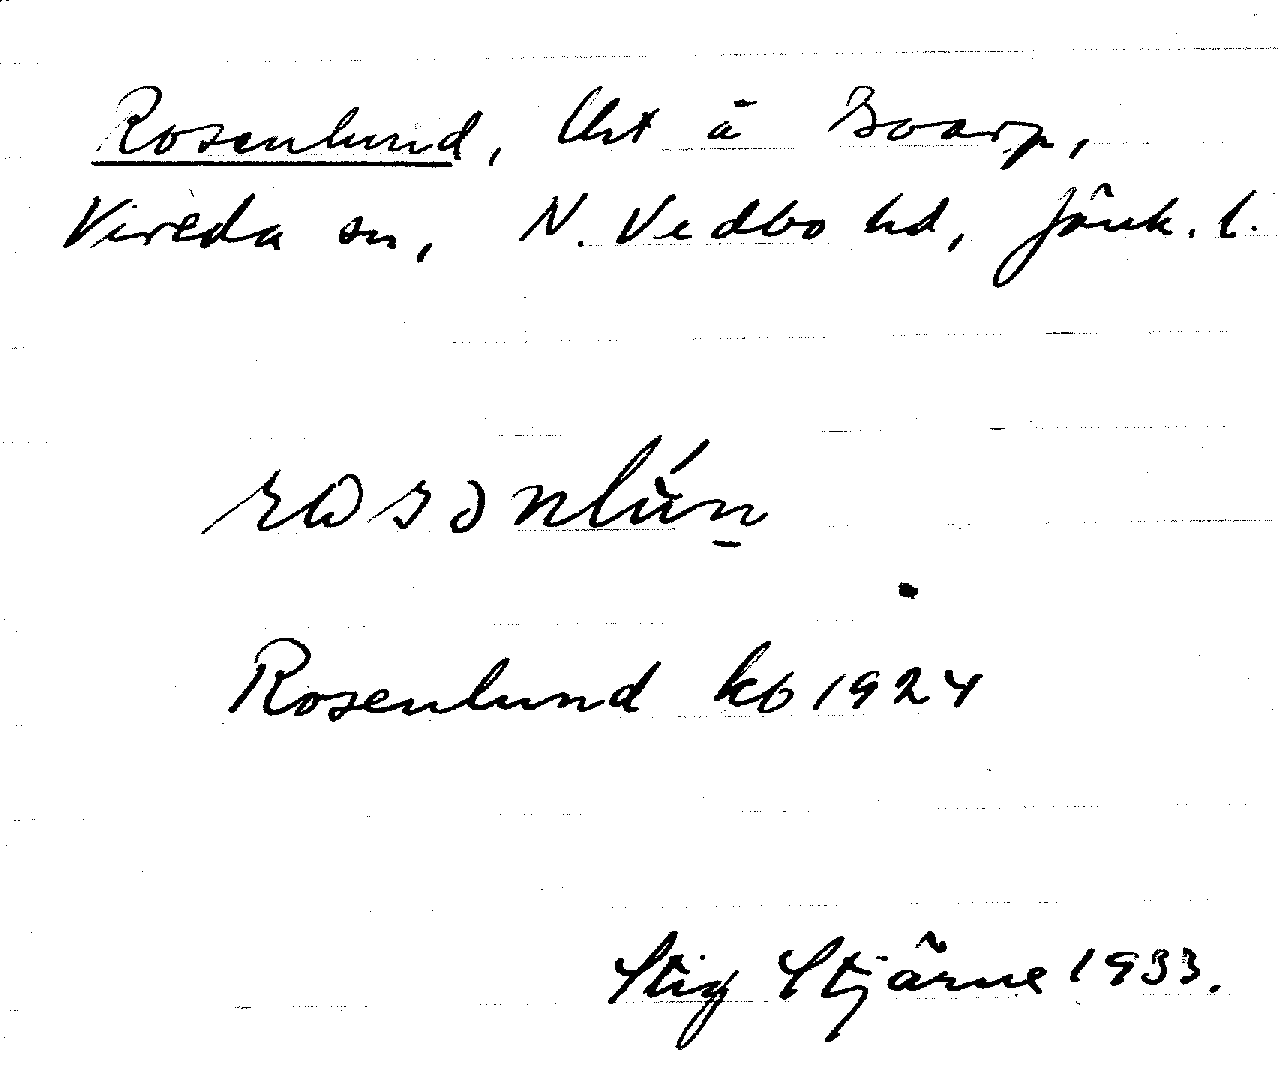 Rosenlund, Uht å Boarp,
Vireda sn, N. Vedbo hd, Jönk. l.
rosənlùn
Rosenlund kb 1924
Stig Stjärne 1933.